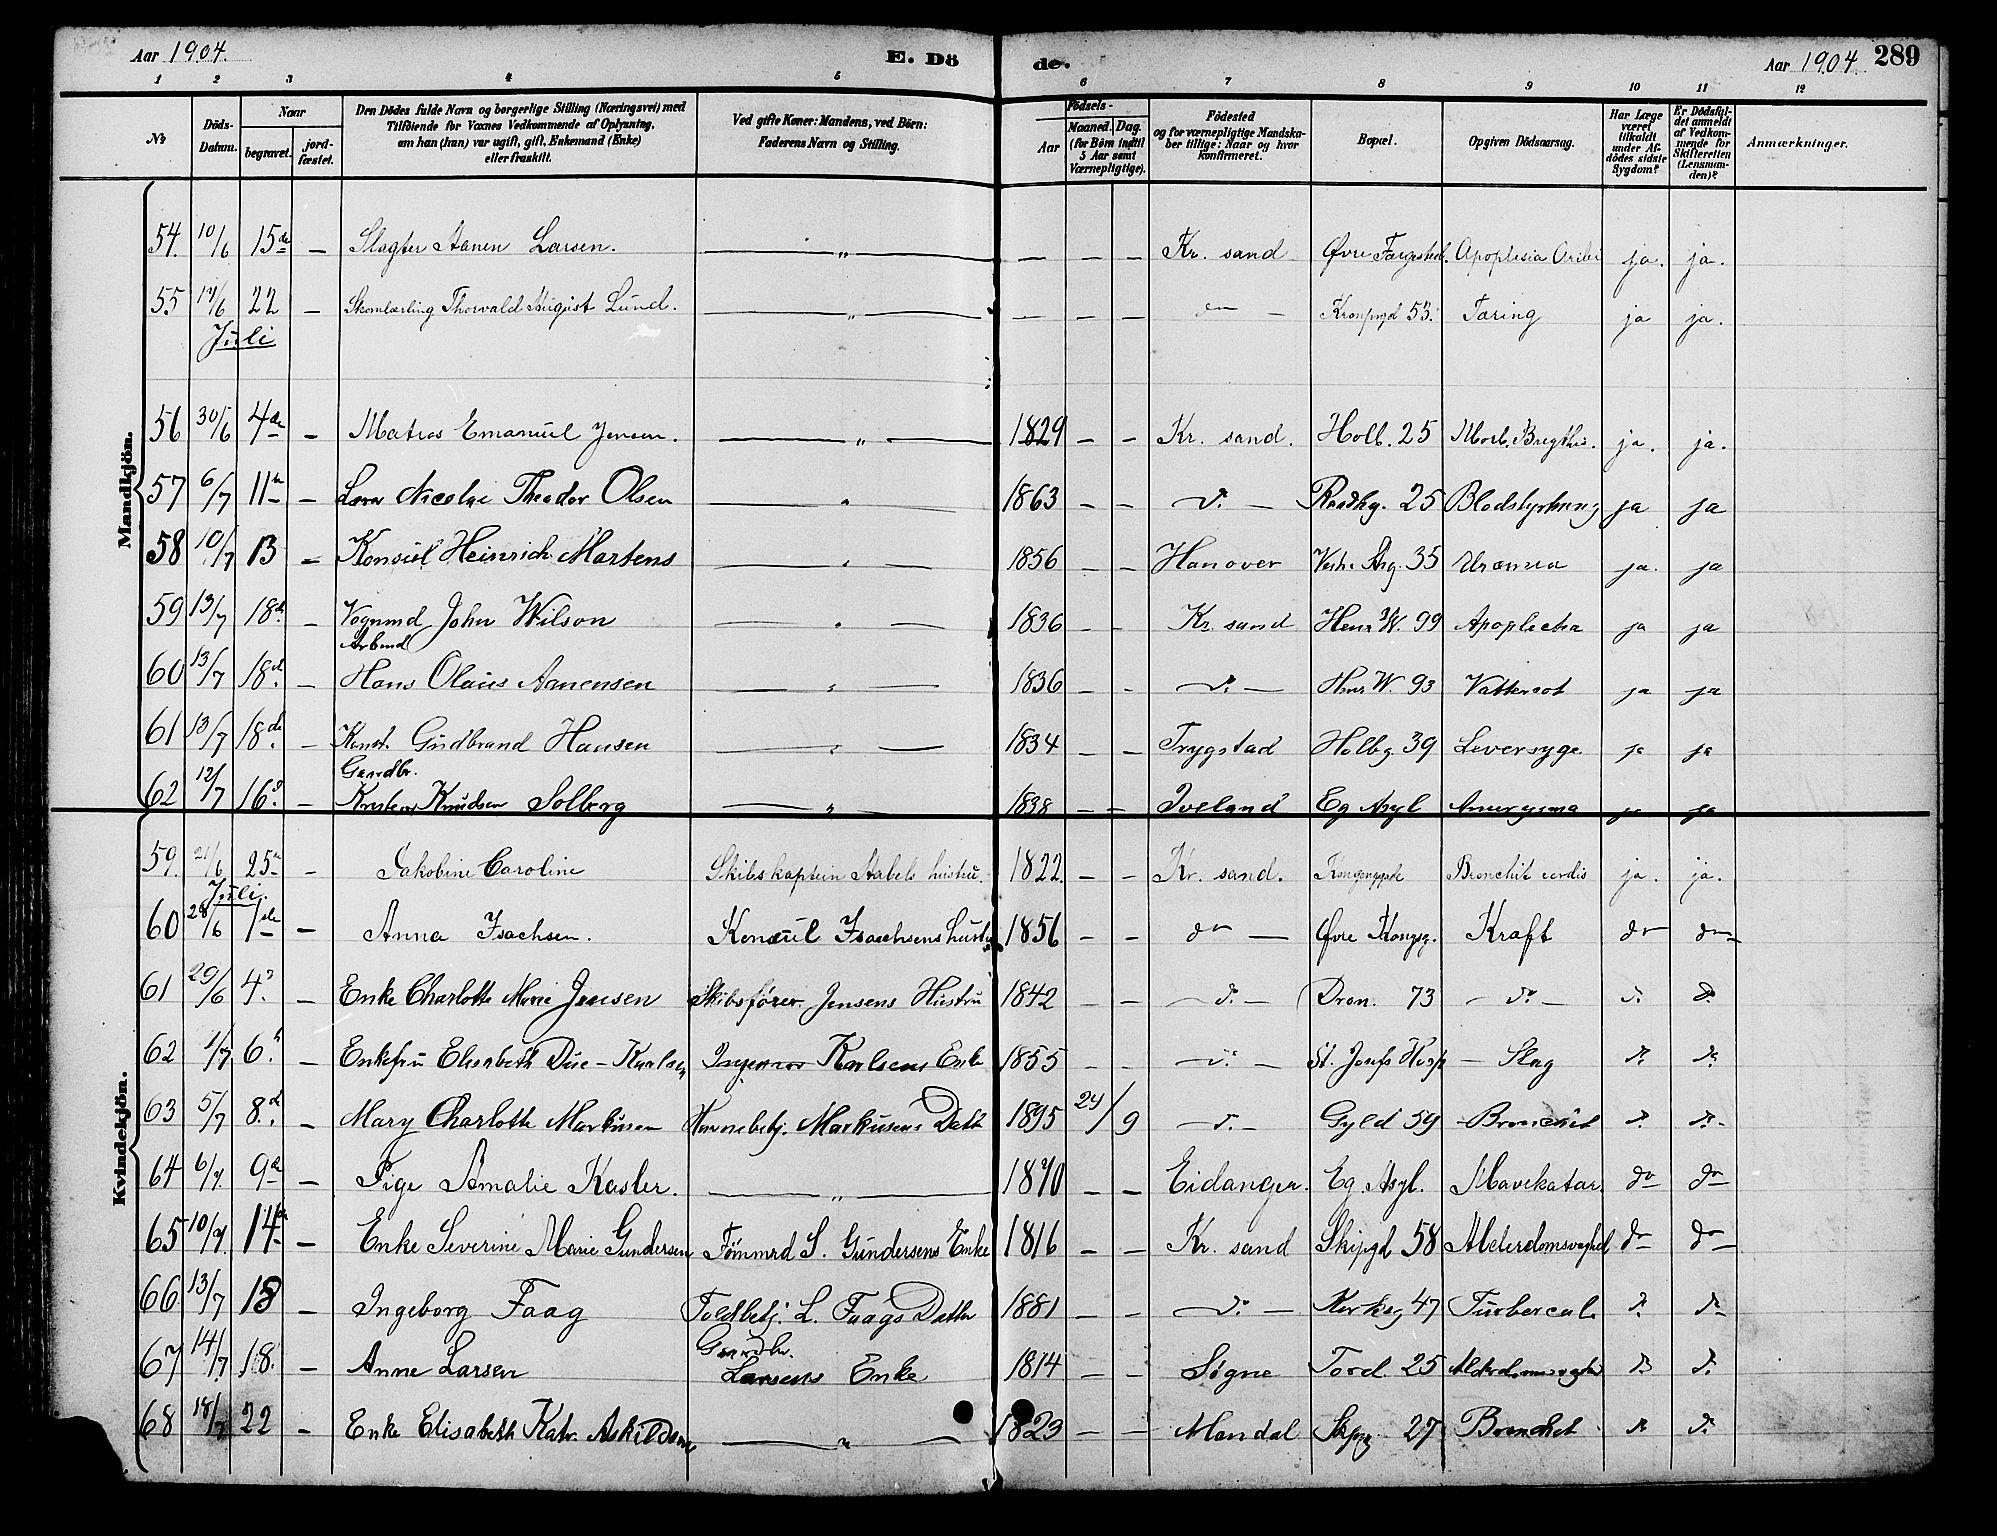 Aar 1904.
E. Dö
de.
Aar 1904
289
1 2 3 4 5 6 7 8 9 10 11 12
№
Döds-
Datum.
Naar
begravet.
jord-
fæstet.
Den Dödes fulde Navn og borgerlige Stilling (Næringsvei) med
Tilföiende for Voxnes Vedkommende af Oplysning,
om han (hun) var ugift, gift, Enkemand (Enke)
eller fraskilt.
Ved gifte Koner: Mandens, ved Börn:
Faderens Navn og Stilling.
Födsels-
Aar
Maaned.
Dag.
(for Börn indtil
5 Aar samt
Værnepligtige).
Födested
og for værnepligtige Mandska-
ber tillige: Naar og hvor
konfirmeret.
Bopæl.
Opgiven Dödsaarsag.
Har Læge
været
tilkaldt
under Af-
dödes sidste
Sygdom?
Er Dödsfal-
det anmeldt
af Vedkom-
mende for
Skifteretten
(Lensman-
den)?
Anmærkninger.
Mandkjön.
54. 10/6 15de — Slagter Aanen Larsen. — „ — — — — Kr. sand Øvre Apoplesia ja. ja.
55 17/6 22 — Skomlærling Thorvald August Lund. — „ — — — — do — 53. Tæring ja ja.
Juli
56 30/6 4de — Matros Emanuel Jensen. — „ — 1829 — — Kr. sand. Holb. 25 Morb. ja. ja.
57 6/7 11te — Nicolai Theodor Olsen — „ — 1863 — — do — Raadhg. 25 Blodstyrtning ja ja
58 10/7 13 — Konsul Heinrich Martens — „ — 1856 — — Hanover 35 Uræmia ja. ja
59 13/7 18d. — Vognmd John Wilson — „ — 1836 — — Kr. sand Henr W. 99 ja ja
Arbmd
60 13/7 18d. — Hans Olaus Aanensen — „ — 1836 — — do — Henr W. 93 Vattersot ja ja
61 13/7 18de. — Konst. Gudbrand Hansen — „ — 1834 — — Trygstad Holbg 39 Leversyge ja ja
Gaardbr.
62 12/7 16d — Knudsen Solberg — „ — 1838 — — Iveland Eg Asyl ja ja
Kvindekjön.
59. 21/6 25 — Jakobine Caroline Skibskaptein Stabels hustru. 1822. — — Kr. sand. Bronchit cordis ja. ja.
Juli.
60 28/6 1ste — Anna Isachsen. Konsul Isachsens hustru 1856 — — do — Øvre Kongsg. Kraft do do
61 29/6 4d. — Enke Charlotte Marie Jensen Skibsfører Jensens Hustru 1842 — — do — Dron. 73 — do — do do
62 1/7 6. — Enkefru Elisabeth Due-Karlsen Karlsens Enke 1855 — — do — St. Josefs Hosp — Slag do do
63 5/7 8d. — Mary Charlotte Markusen Havnebetj. Markusens Datt 1895 24/9 — do — Gyld 59 Bronchit do do
64 6/7. 9d — Pige Amalie Kasler. — „ — 1870 — — Eidanger. Eg. Asyl. Mavekatar. do do
65 10/7. 14de — Enke Severine Marie Gundersen Tømmrd S. Gundersens Enke 1816 — — Kr. sand Skipgd 58 Alderdomsvaghed do do
66 13/7 18 — Ingeborg Faag Toldbetj. L. Faags Datter 1881 — — do — Kirkeg 47 Turbercul. do do
Gaardbr.
67 14/7 18. — Anne Larsen Larsens Enke 1814 — — Søgne Tord. 25 do do
68 18/7 22 — Enke Elisabeth Katr. Askildsen — „ — 1823 — — Mandal Skpg 27 Bronchit do do